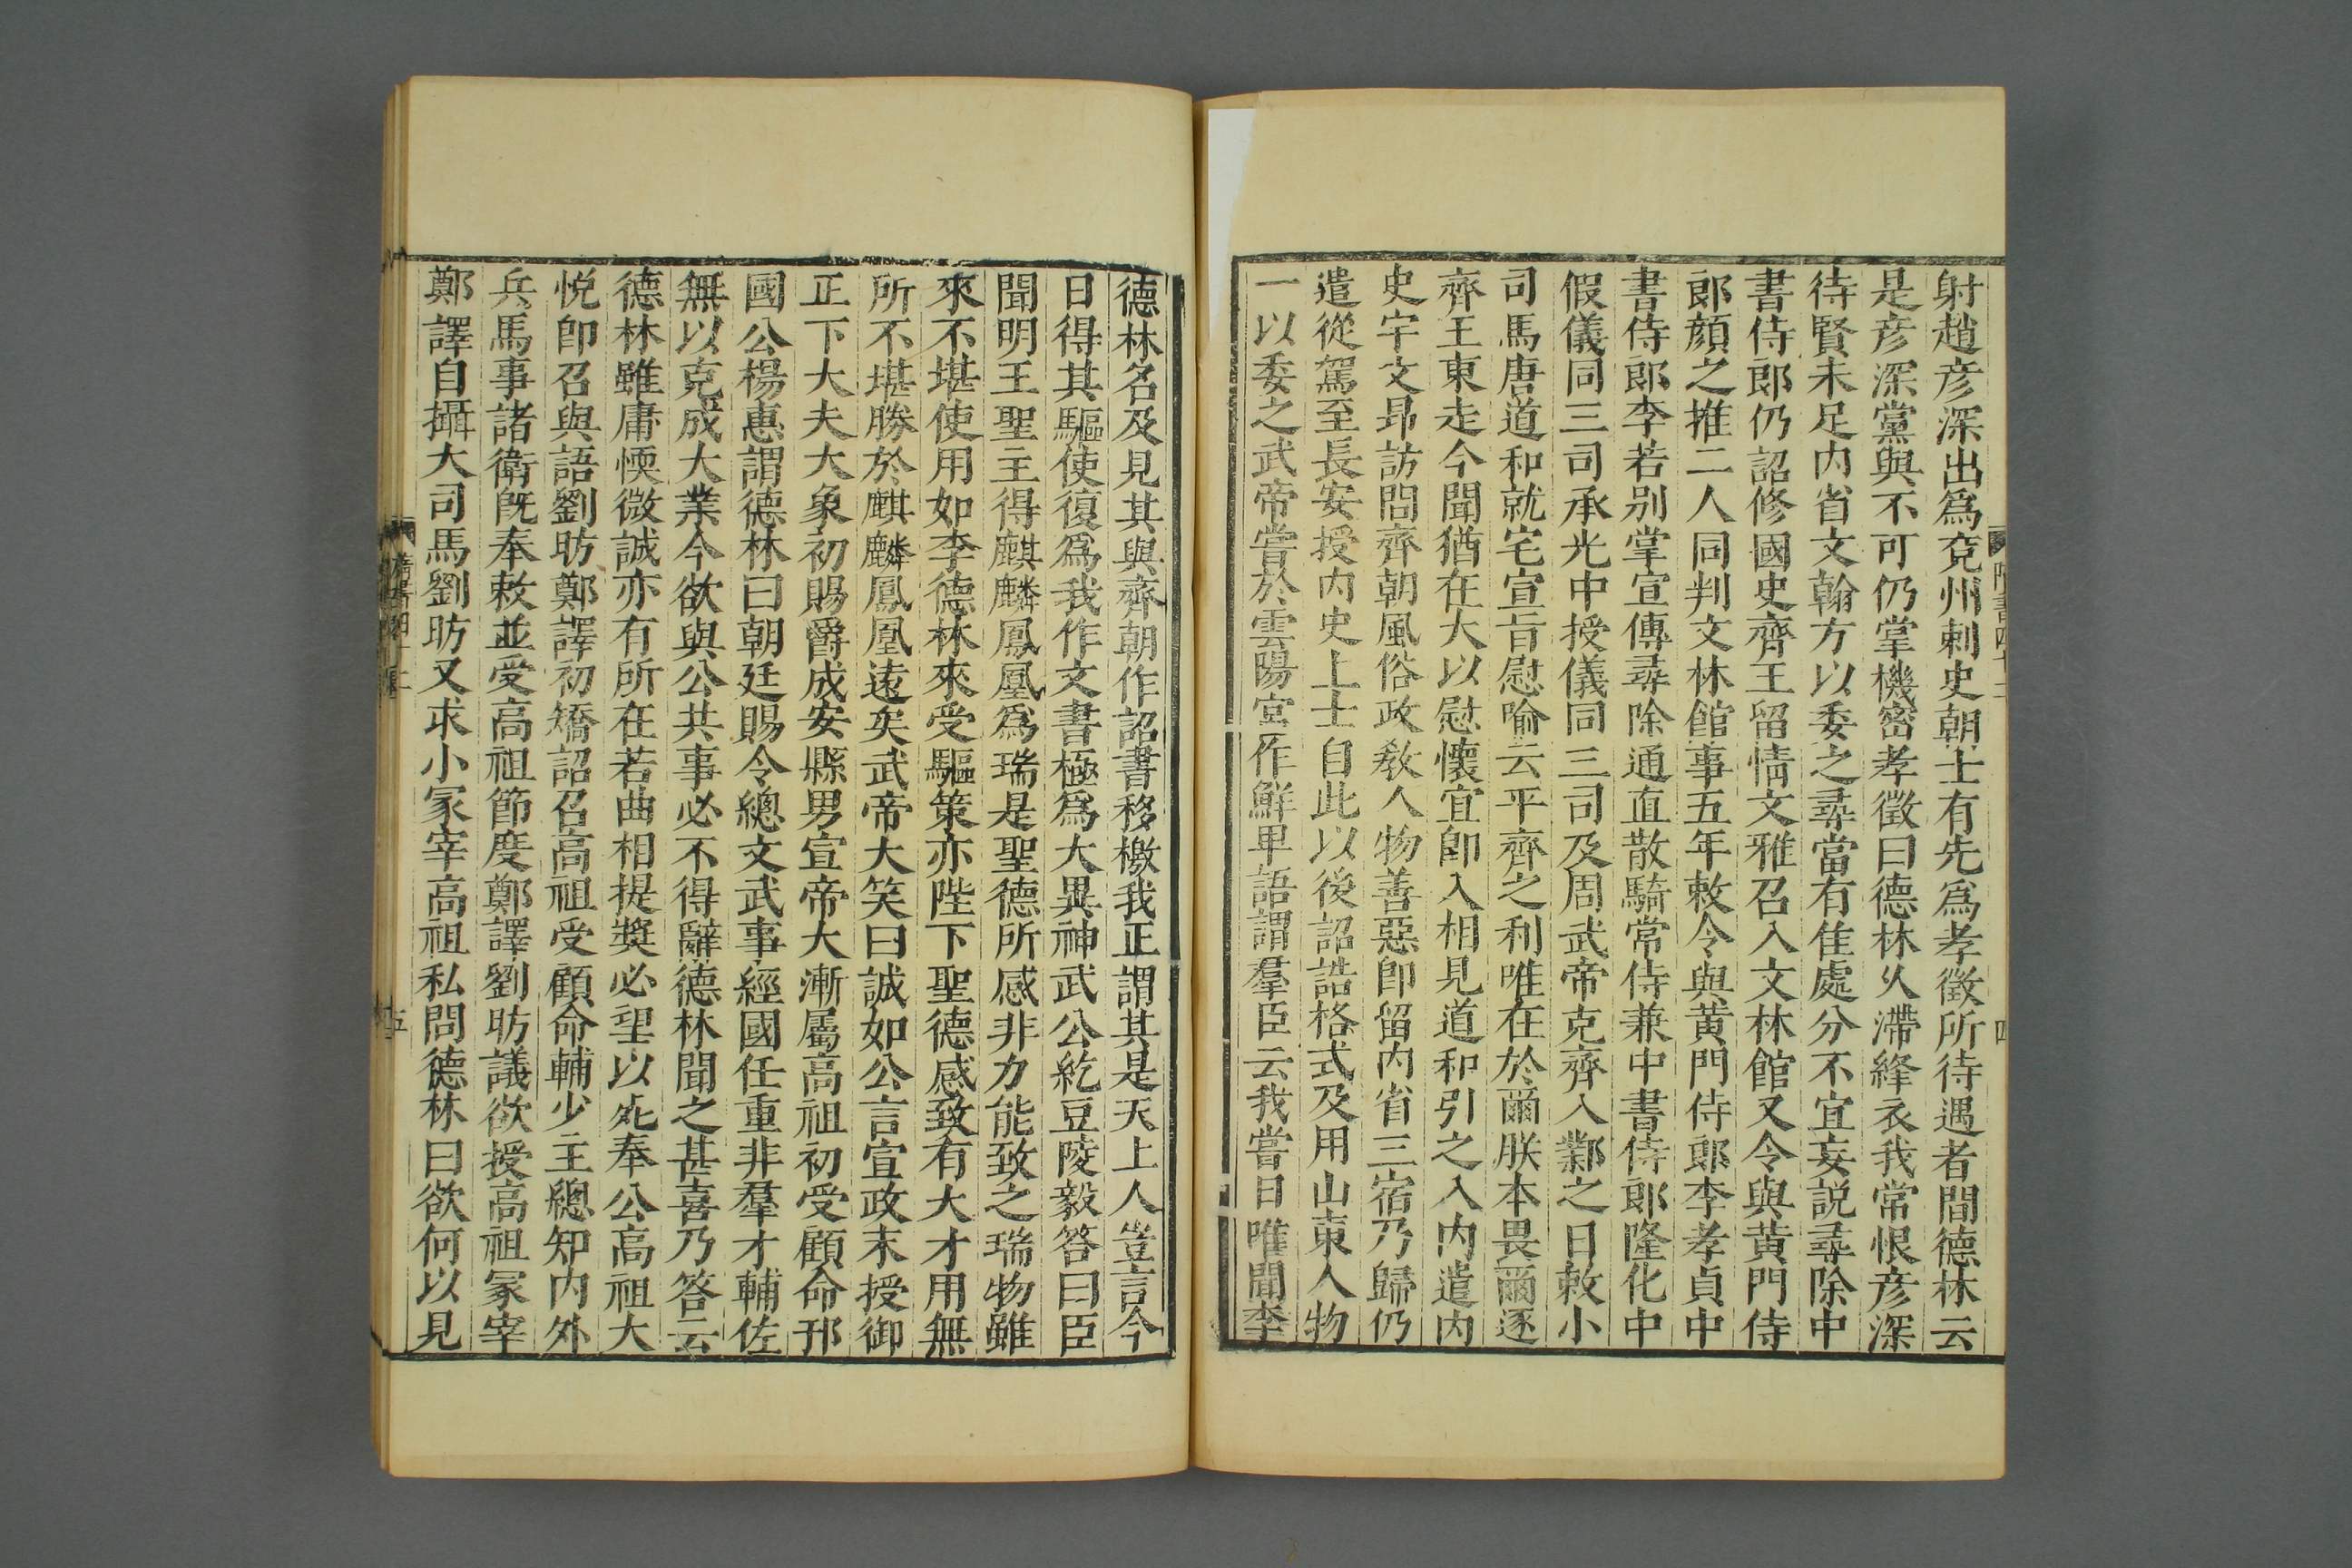 射趙彦深出爲兖州刺史朝士有先爲孝徵所待遇者間德林云
是彦深黨與不可仍掌機密孝徵曰德林乆滯絳衣我常恨彦深
待賢未足内省文翰方以委之尋當有佳處分不宜妄説尋除中
書侍郎仍詔修國史齊王留情文雅召入文林館又令與黄門侍
郎顔之推二人同判文林館事五年敕令與黄門侍郎李孝貞中
書侍郎李若别掌宣傳尋除通直散騎常侍兼中書侍郎隆化中
假儀同三司承光中授儀同三司及周武帝克齊入鄴之日敕小
司馬唐道和就宅宣旨慰喻云平齊之利唯在於爾朕本畏爾逐
齊王東走今聞猶在大以慰懷宜即入相見道和引之入内遣内
史宇文昻訪問齊朝風俗政教人物善惡即留内省三宿乃歸仍
遣從駕至長安授内史上士自此以後詔誥格式及用山東人物
一以委之武帝嘗於雲陽宫作鮮卑語謂羣臣云我嘗日唯聞李
德林名及見其與齊朝作詔書移檄我正謂其是天上人豈言今
日得其驅使復爲我作文書極爲大異神武公紇豆陵毅答曰臣
聞明王聖主得麒麟鳳凰爲瑞是聖德所感非力能致之瑞物雖
來不堪使用如李德林來受驅策亦陛下聖德感致有大才用無
所不堪勝於麒麟鳳凰遠矣武帝大笑曰誠如公言宣政末授御
正下大夫大象初賜爵成安縣男宣帝大漸屬高祖初受顧命邗
國公楊惠謂德林曰朝廷賜令總文武事經國任重非羣才輔佐
無以克成大業今欲與公共事必不得辭德林聞之甚喜乃答云
德林雖庸愞微誠亦有所在若曲相提奬必望以死奉公高祖大
悦即召與語劉昉鄭譯初矯詔召高祖受顧命輔少主總知内外
兵馬事諸衛既奉敕並受高祖節度鄭譯劉昉議欲授高祖冢宰
鄭譯自攝大司馬劉昉又求小冢宰高祖私問德林曰欲何以見
隋書四十二
五